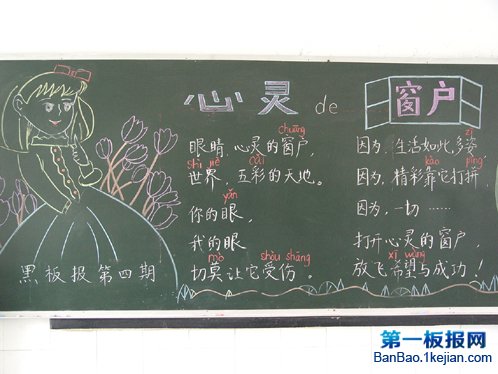 心灵 de 窗户
chuāng
眼睛，心灵的窗户，
shì jiè cǎi
世界，五彩的天地。
yǎn
你的眼，
我的眼
mò shòu shāng
切莫让它受伤。
zī
因为，生活如此多姿
kào pīng
因为，精彩靠它打拼，
因为，一切……
打开心灵的窗户
xī wàng
放飞希望与成功！
黑板报第四期
第一板报网
BanBao.1kejian.com